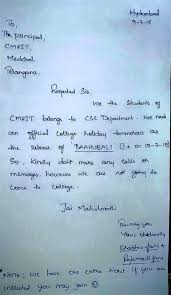 Hyderabad
9-7-15
To,
The principal,
CMRIT,
Medchal,
Telangana.
Respected Sir,
We the Students of
CMRIT belongs to CSE Department. We need
an official College holiday tommorow as
the release of "BAAHUBALI" ( on 10-7-15)
So, kindly dont make any calls or
messages, because we are not going to
come to college.
Jai Mahishmathi
Yours Obidiently
Prabhas fans &
Note: We have one extra ticket if you are
intrested you may join